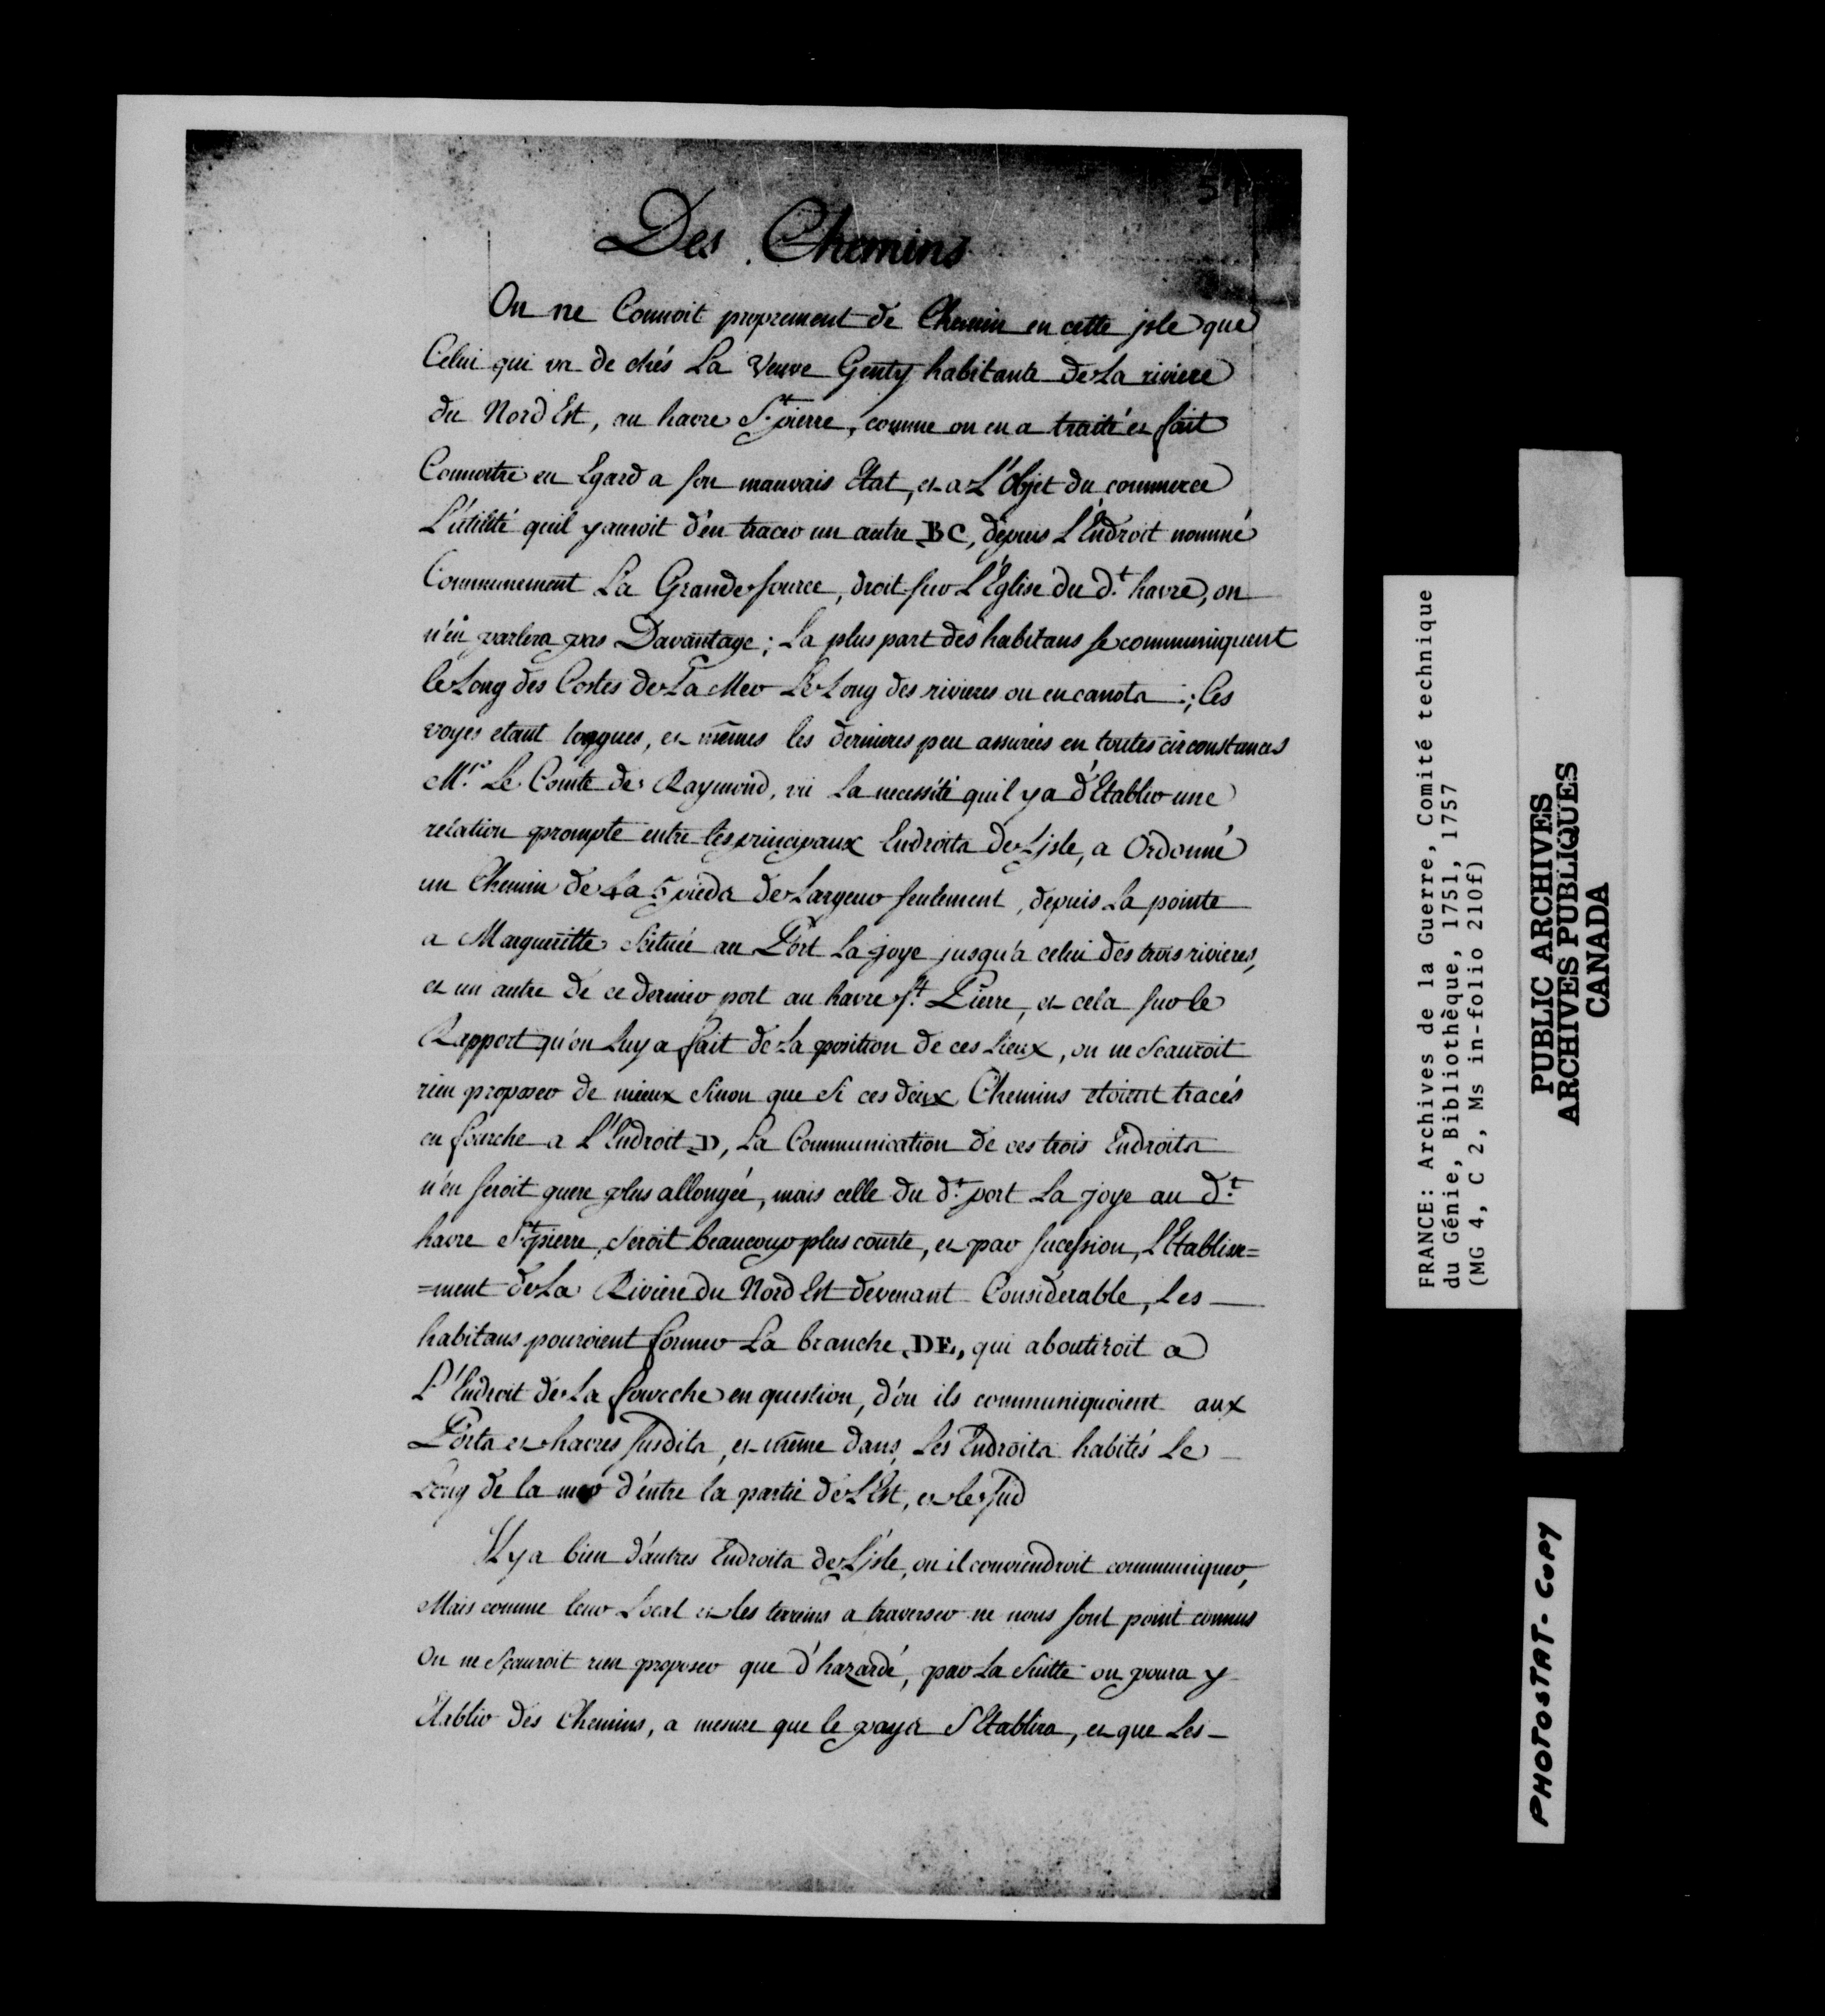 51
Des Chemins
On ne Connoit proprement de Chemin en cette jsle que
Celui qui va de chés La Veuve Genty habitante de La riviere
du Nord Est, au havre St. pierre, comme on en a traité et fait
Connoitre eu Egard a son mauvais Etat, et a L'Objet du commerce
L'utilité quil y auroit d'en tracer un autre BC, depuis L'Endroit nommé
Communement La Grande Source, droit sur L'Eglise du dt. havre, on
n'en parlera pas Davantage; La plus part des habitans se communiquent
le Long des Costes de La Mer Le Long des rivieres ou en canots; Ces
voyes etant longues, et mêmes les dernieres peu assurées en toutes circonstances
Mr. Le Comte de Raymond, vû La necessité quil y a d'Etablir une
relation prompte entre les principaux Endroits de L'jsle, a Ordonné
un Chemin de 4 a 5 pieds de Largeur seulement, depuis La pointe
a Margueritte Scituée au Port La joye jusqu'a celui des trois rivieres,
et un autre de ce dernier port au havre St. Pierre, et cela sur le
Rapport qu'on Luy a fait de La position de ces Lieux, on ne Scauroit
rien proposer de mieux Sinon que Si ces deux Chemins etoient tracés
en fourche a L'Endroit D, La Communication de ces trois Endroits
n'en seroit guere plus allongée, mais celle du dt. port La joye au dt.
havre St. pierre, Seroit beaucoup plus courte, et par sucession, L'Etablisse=
=ment de La Riviere du Nord Est devenant Considerable, Les
habitans pouroient former La branche DE, qui aboutiroit a
L'Endroit de La fourche en question, d'ou ils communiquoient aux
Ports et havres susdits, et même dans Les Endroits habités Le
Long de la mer d'entre la partie de L'Est, et le Sud
Il y a bien d'autres Endroits de L'jsle, ou il conviendroit communiquer,
Mais comme leur Local et les terreins a traverser ne nous sont point connus
On ne Sçauroit rien proposer que d'hazardé, par La Suitte on poura y
Etablir des Chemins, a mesure que le pays S'Etablira, et que Les
FRANCE: Archives de la Guerre, Comité technique
du Génie, Bibliothèque, 1751, 1757
(MG 4, C 2, Ms in-folio 210f)
PUBLIC ARCHIVES
ARCHIVES PUBLIQUES
CANADA
PHOTOSTAT-COPY